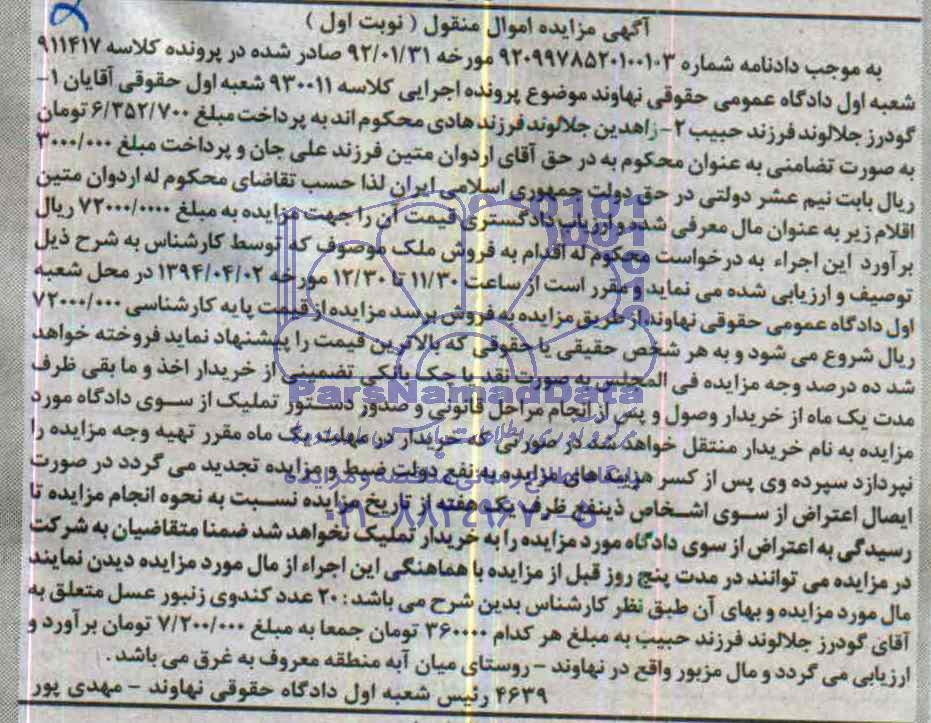 آگهی مزایده اموال منقول ( نوبت اول )
به موجب دادنامه شماره ۹۲۰۹۹۷۸۵۲۰۱۰۰۱۰۳ مورخه ۹۲/۰۱/۳۱ صادر شده در پرونده کلاسه ۹۱۱۴۱۷
شعبه اول دادگاه عمومی حقوقی نهاوند موضوع پرونده اجرایی کلاسه ۹۳۰۰۱۱ شعبه اول حقوقی آقایان ۱-
گودرز جلالوند فرزند حبیب ۲- زاهدین جلالوند فرزند هادی محکوم اند به پرداخت مبلغ ۶/۳۵۲/۷۰۰ تومان
به صورت تضامنی به عنوان محکوم به در حق آقای اردوان متین فرزند علی جان و پرداخت مبلغ ۳۰۰۰/۰۰۰
ریال بابت نیم عشر دولتی در حق دولت جمهوری اسلامی ایران لذا حسب تقاضای محکوم له اردوان متین
اقلام زیر به عنوان مال معرفی شده و ارزیاب دادگستری قیمت آن را جهت مزایده به مبلغ ۷۲۰۰۰/۰۰۰۰ ریال
برآورد این اجراء به درخواست محکوم له اقدام به فروش ملک موصوف که توسط کارشناس به شرح ذیل
توصیف و ارزیابی شده می نماید و مقرر است از ساعت ۱۱/۳۰ تا ۱۲/۳۰ مورخه ۱۳۹۴/۰۴/۰۲ در محل شعبه
اول دادگاه عمومی حقوقی نهاوند از طریق مزایده به فروش برسد مزایده از قیمت پایه کارشناسی ۷۲۰۰۰/۰۰۰
ریال شروع می شود و به هر شخص حقیقی یا حقوقی که بالاترین قیمت را پیشنهاد نماید فروخته خواهد
شد ده درصد وجه مزایده فی المجلس به صورت نقد یا چک بانکی تضمینی از خریدار اخذ و ما بقی ظرف
مدت یک ماه از خریدار وصول و پس از انجام مراحل قانونی و صدور دستور تملیک از سوی دادگاه مورد
مزایده به نام خریدار منتقل خواهد شد در صورتی که خریدار در مهلت یک ماه مقرر تهیه وجه مزایده را
نپردازد سپرده وی پس از کسر هزینه های مزایده به نفع دولت ضبط و مزایده تجدید می گردد در صورت
ایصال اعتراض از سوی اشخاص ذینفع ظرف یک هفته از تاریخ مزایده نسبت به نحوه انجام مزایده تا
رسیدگی به اعتراض از سوی دادگاه مورد مزایده را به خریدار تملیک نخواهد شد ضمنا متقاضیان به شرکت
در مزایده می توانند در مدت پنج روز قبل از مزایده با هماهنگی این اجراء از مال مورد مزایده دیدن نمایند
مال مورد مزایده و بهای آن طبق نظر کارشناس بدین شرح می باشد : ۲۰ عدد کندوی زنبور عسل متعلق به
آقای گودرز جلالوند فرزند حبیب به مبلغ هر کدام ۳۶۰۰۰۰ تومان جمعا به مبلغ ۷/۲۰۰/۰۰۰ تومان برآورد و
ارزیابی می گردد و مال مزبور واقع در نهاوند - روستای میان آبه منطقه معروف به غرق می باشد .
۴۶۳۹ رئیس شعبه اول دادگاه حقوقی نهاوند - مهدی پور
ParsNamadData